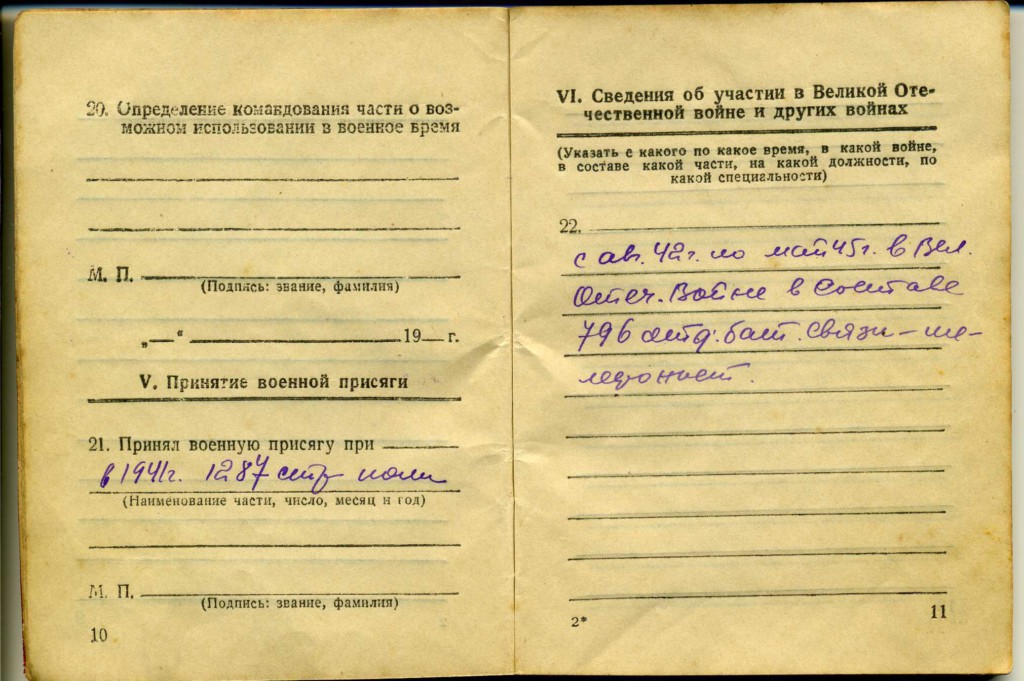 20. Определение командования части о воз-
можном использовании в военное время
М. П.
(Подпись: звание, фамилия)
„—“ 19— г.
V. Принятие военной присяги
21. Принял военную присягу при
в 1941г. 1287 стр полк
(Наименование части, число, месяц и год)
М. П.
(Подпись: звание, фамилия)
10
VI. Сведения об участии в Великой Оте-
чественной войне и других войнах
(Указать с какого по какое время, в какой войне,
в составе какой части, на какой должности, по
какой специальности)
22.
с авг. 42г. по май 45г. в Вел.
Отеч. Войне в составе
796 отд. бат. связи – те-
лефонист.
2*
11